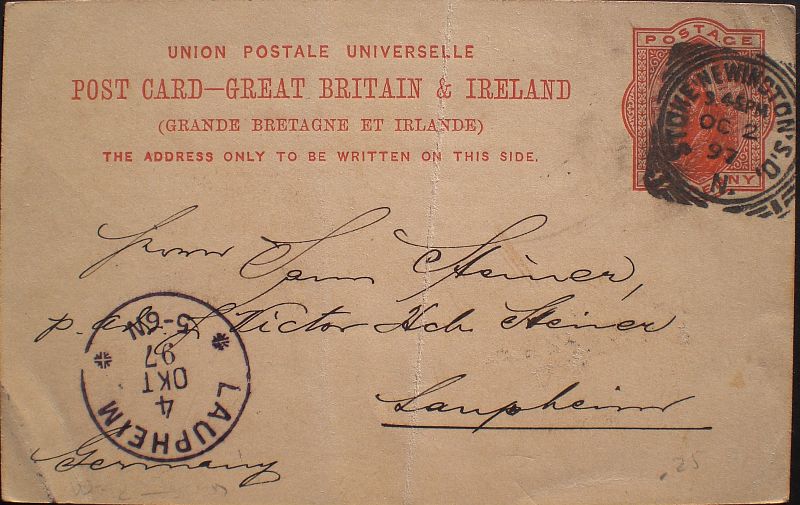 UNION POSTALE UNIVERSELLE
POST CARD—GREAT BRITAIN & IRELAND
(GRANDE BRETAGNE ET IRLANDE)
THE ADDRESS ONLY TO BE WRITTEN ON THIS SIDE.
POSTAGE
NY
STOKE NEWINGTON. S.O.
3.45PM
OC 2
97
N.
Herrn Sam Steiner,
p. Victor Hch. Steiner
Laupheim
Germany
LAUPHEIM
4
OKT
97
5-6N
.25